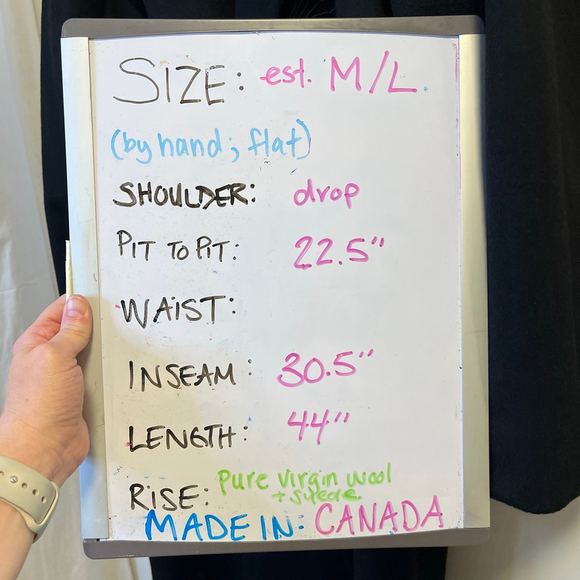 SIZE: est. M/L.
(by hand; flat)
SHOULDER: drop
PIT TO PIT: 22.5"
WAIST:
INSEAM: 30.5"
LENGTH: 44"
RISE: pure virgin wool
+ suede
MADE IN: CANADA